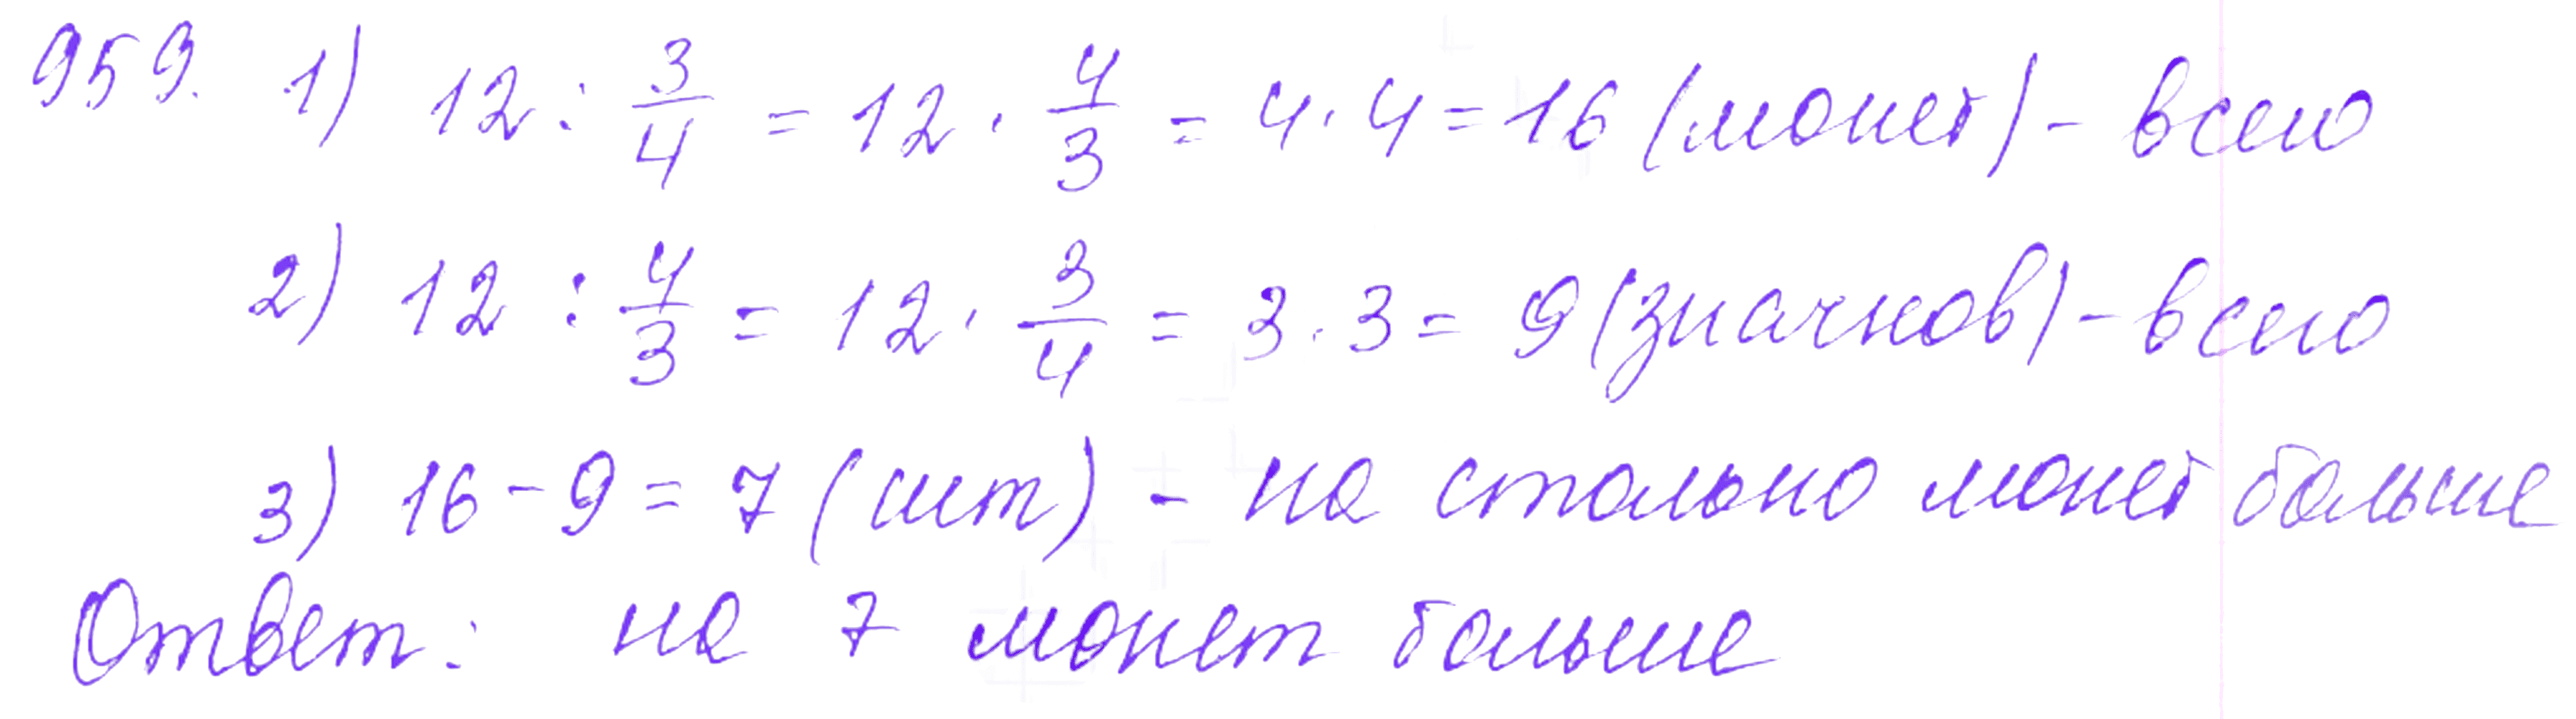 959. 1) 12 : 3/4 = 12 · 4/3 = 4 · 4 = 16 (монет) - всего
2) 12 : 4/3 = 12 · 3/4 = 3 · 3 = 9 (значков) - всего
3) 16 - 9 = 7 (шт) - на столько монет больше
Ответ: на 7 монет больше